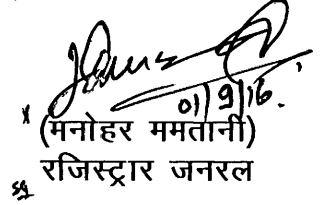 01/9/16.
(मनोहर ममतानी)
रजिस्ट्रार जनरल